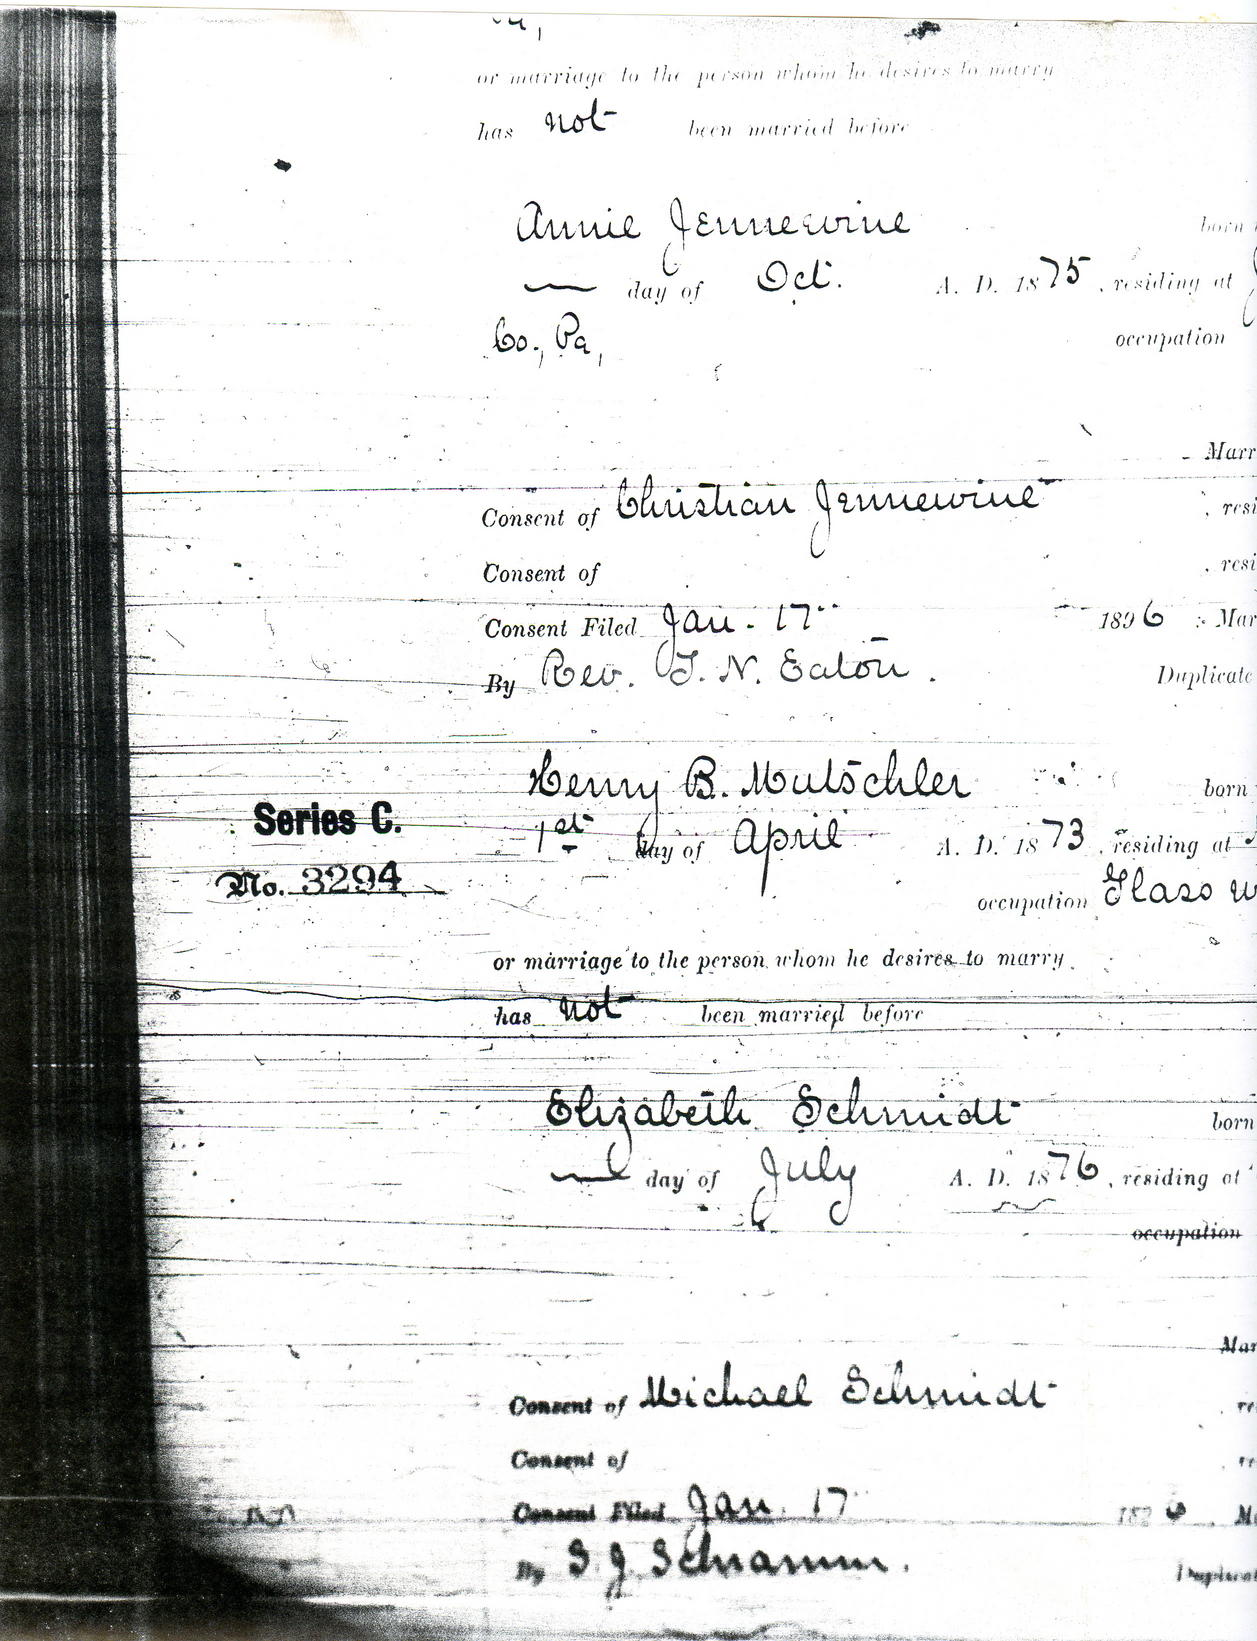 or marriage to the person whom he desires to marry
has not been married before
Annie Jennewine born
day of Oct. A. D. 1875, residing at
Co., Pa, occupation
Marr
Consent of Christian Jennewine , resi
Consent of , resi
Consent Filed Jan. 17 1896 Mar
By Rev. T. N. Eaton. Duplicate
Henry B. Mutschler born
Series C. 1st day of April A. D. 1873, residing at
No. 3294 occupation Glass w
or marriage to the person whom he desires to marry
has not been married before
Elizabeth Schmidt born
day of July A. D. 1876, residing at
occupation
Mar
Consent of Michael Schmidt
Consent of
Consent Filed Jan. 17 1896
By S. J. Schramm. Duplicat